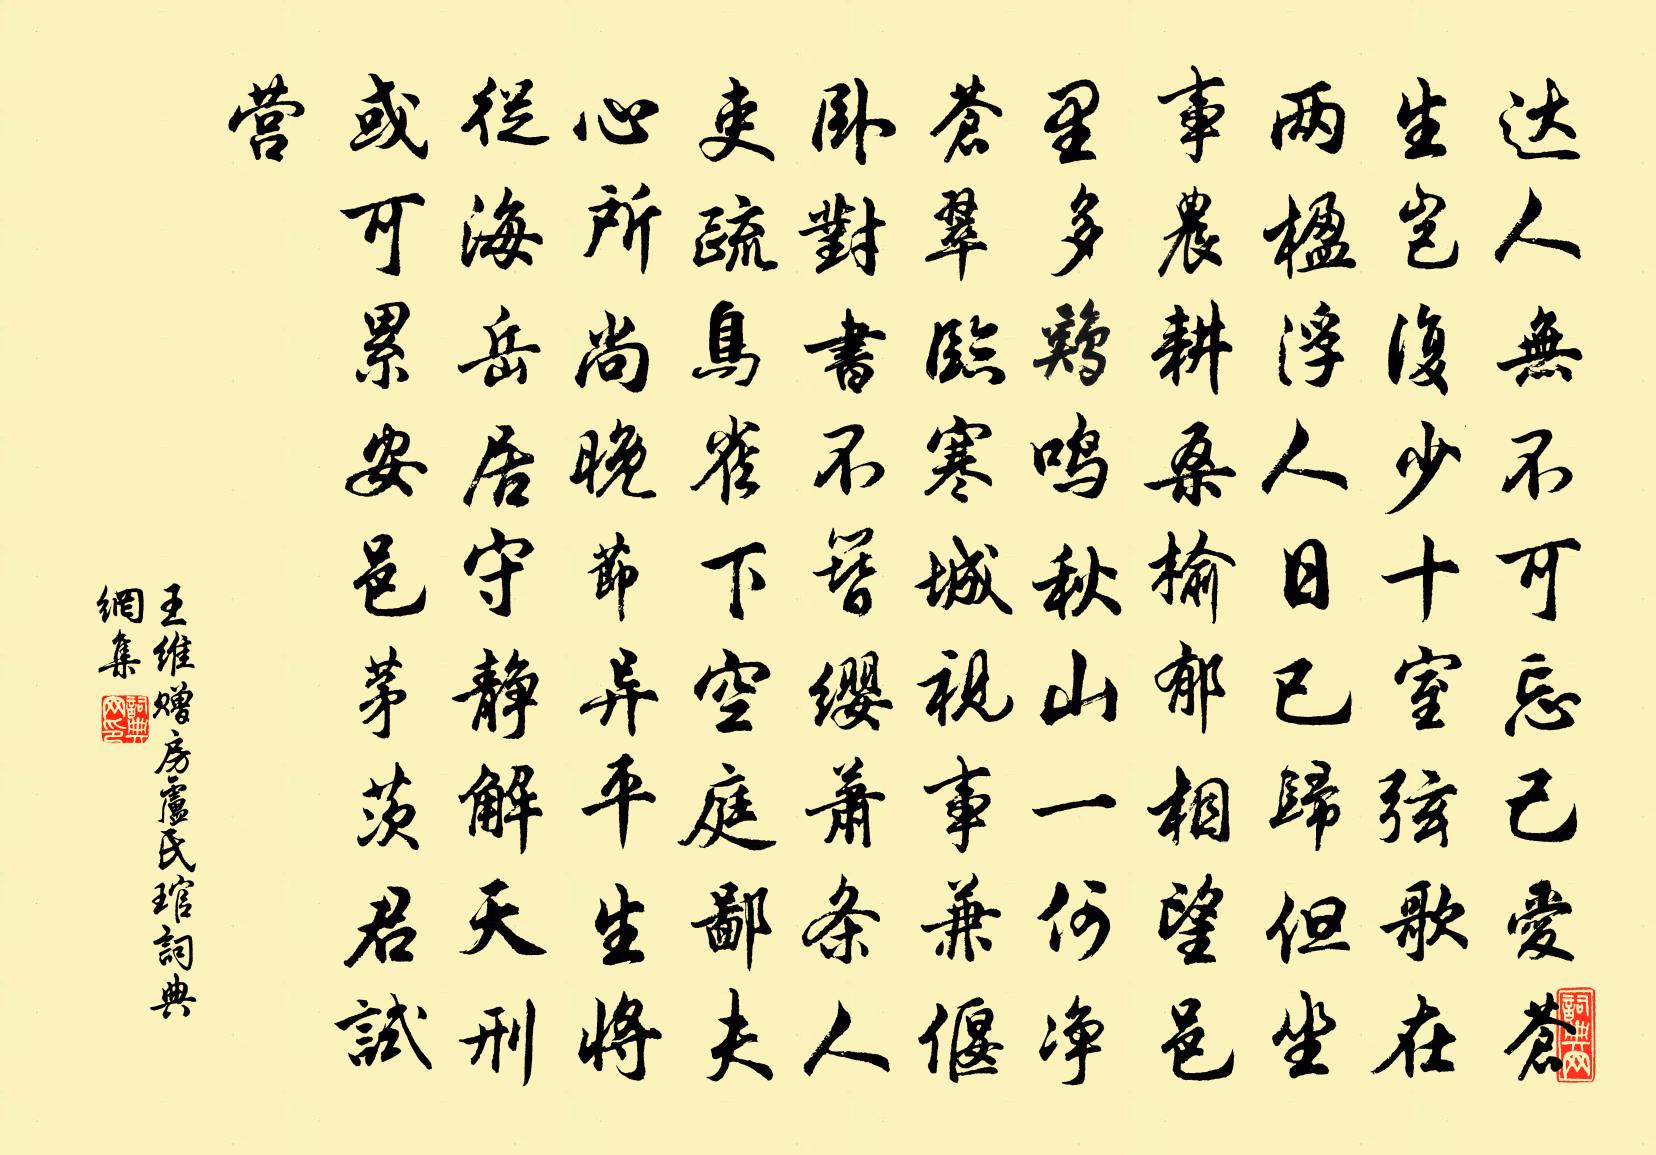 达人無不可忘己愛蒼
生岂復少十室弦歌在
两楹浮人日已歸但坐
事農耕桑榆郁相望邑
里多鷄鸣秋山一何净
蒼翠臨寒城視事兼偃
卧對書不簪缨萧条人
吏疏鳥雀下空庭鄙夫
心所尚晚節异平生將
從海岳居守静解天刑
或可累安邑茅茨君試
营
王維赠房盧氏琯詞典
網集
詞典网印
詞典网